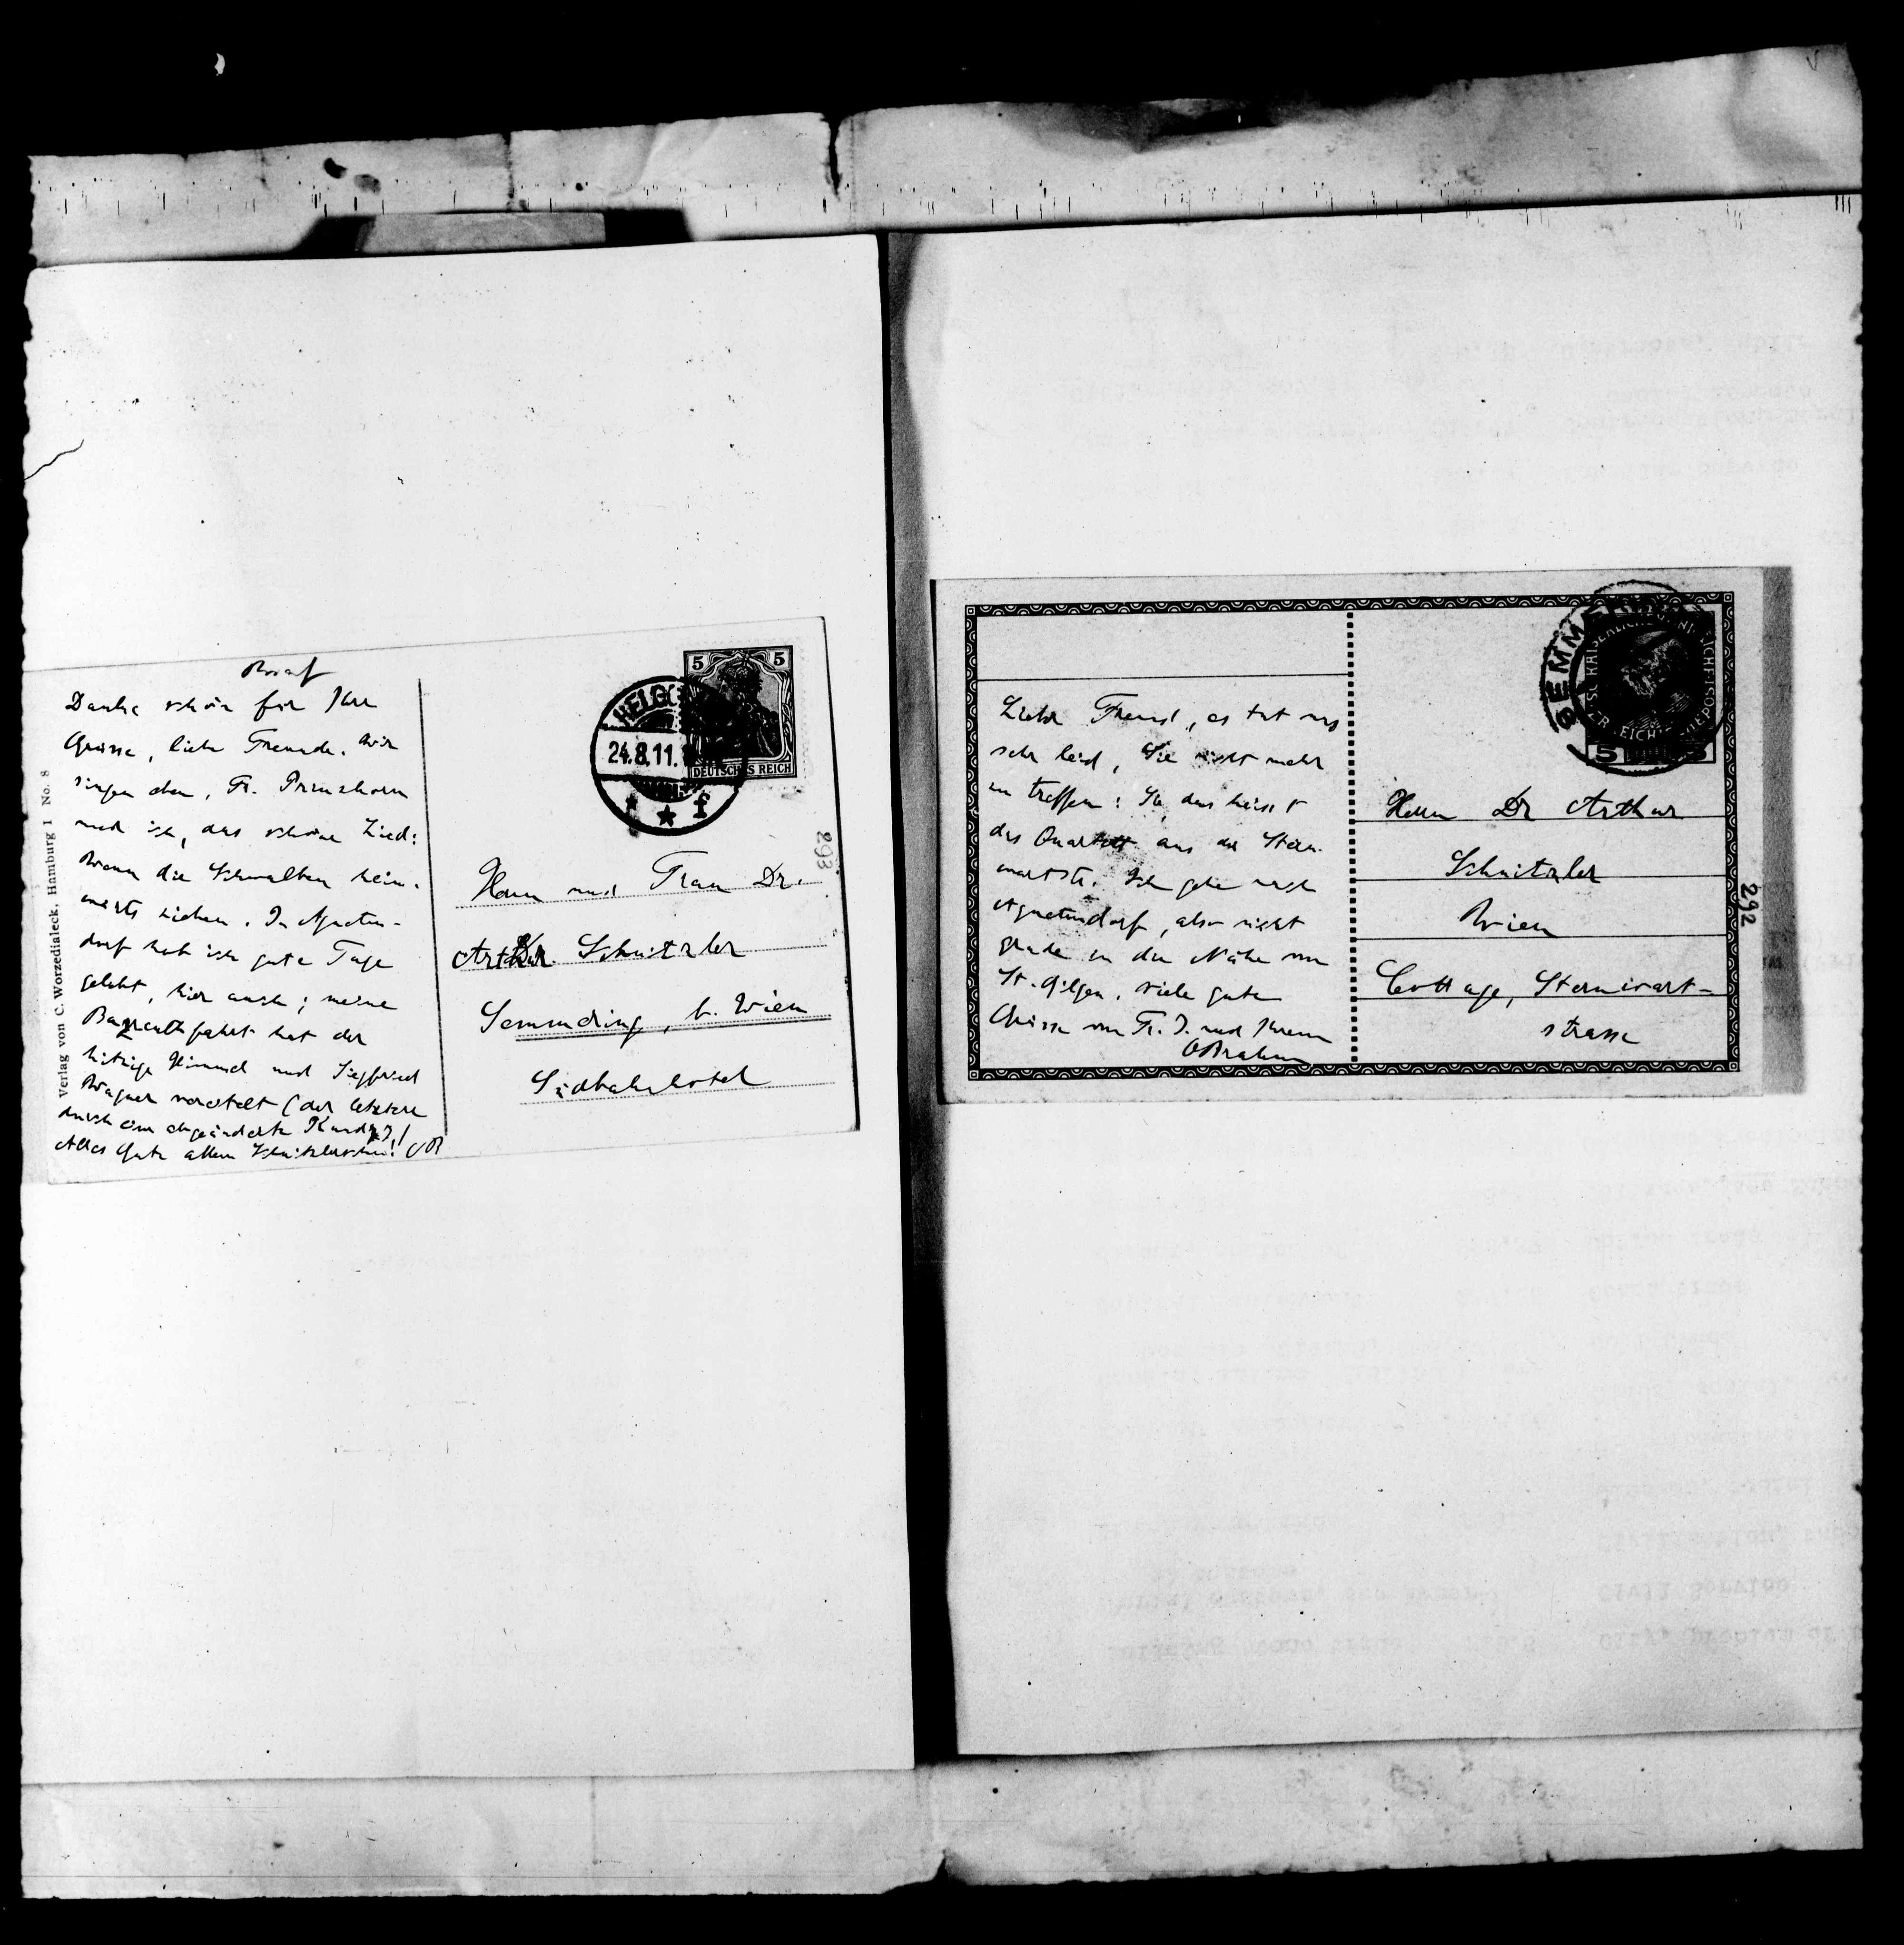 Danke schön für Ihre
Grüsse, liebe Freunde. Wir
singen eben, Fr. Prinzhorn
und ich, das schöne Lied:
Wenn die Schwalben heim-
wärts ziehen. In Agneten-
dorf hab ich gute Tage
gelebt, hier auch; meine
Bayreuthfahrt hat der
hitzige Himmel und Siegfried
Wagner vereitelt (der letztere
durch eine abgeänderte
Alles Gute allen Schnitzlerschen! OB
Verlag von C. Worzedialeck, Hamburg 1 No. 8
HELGO
24.8.11.
5 5
DEUTSCHES REICH
293
Herrn und Frau Dr.
Arthur Schnitzler
Semmering, b. Wien
Südbahnhotel
SEMME
5
Lieber Freund, es tut mir
sehr leid, Sie nicht mehr
zu treffen: Sie, das heisst
das Quartett aus der Stern-
wartstr. Ich gehe nach
Agnetendorf, also nicht
grade in die Nähe von
St. Gilgen. Viele gute
Grüsse von Fr. J. und Ihrem
OBrahm
Herrn Dr Arthur
Schnitzler
Wien
Cottage, Sternwart-
strasse
292